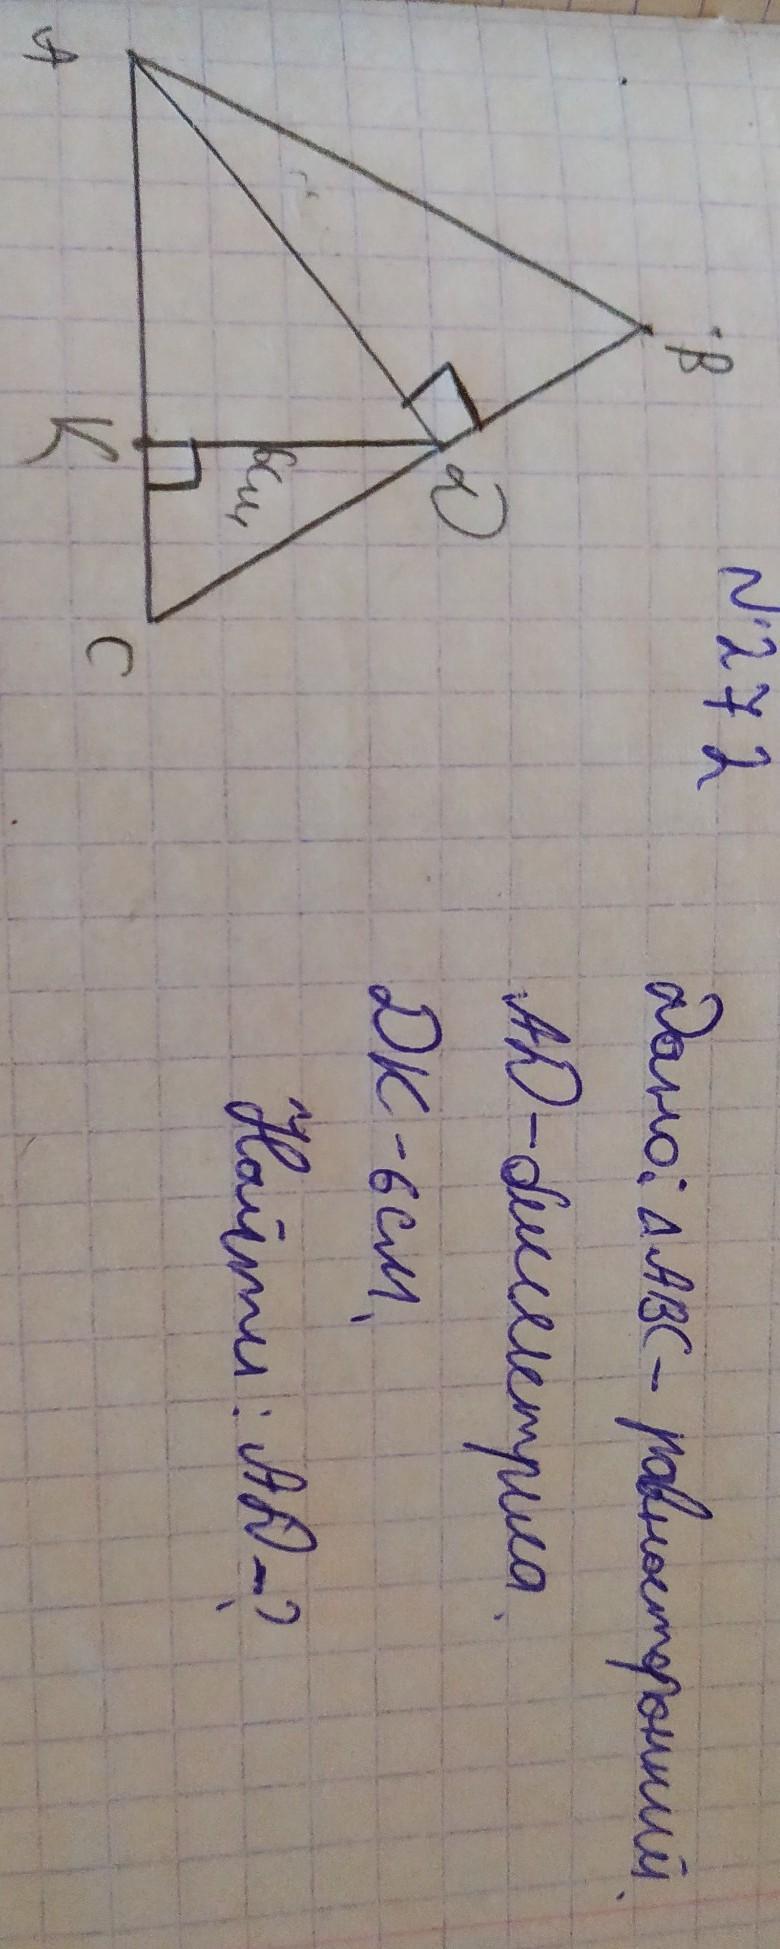 №272
B
A
D
6см,
K
C
Дано: △ABC - равносторонний.
AD - биссектриса.
DK - 6 см,
Найти: AD - ?